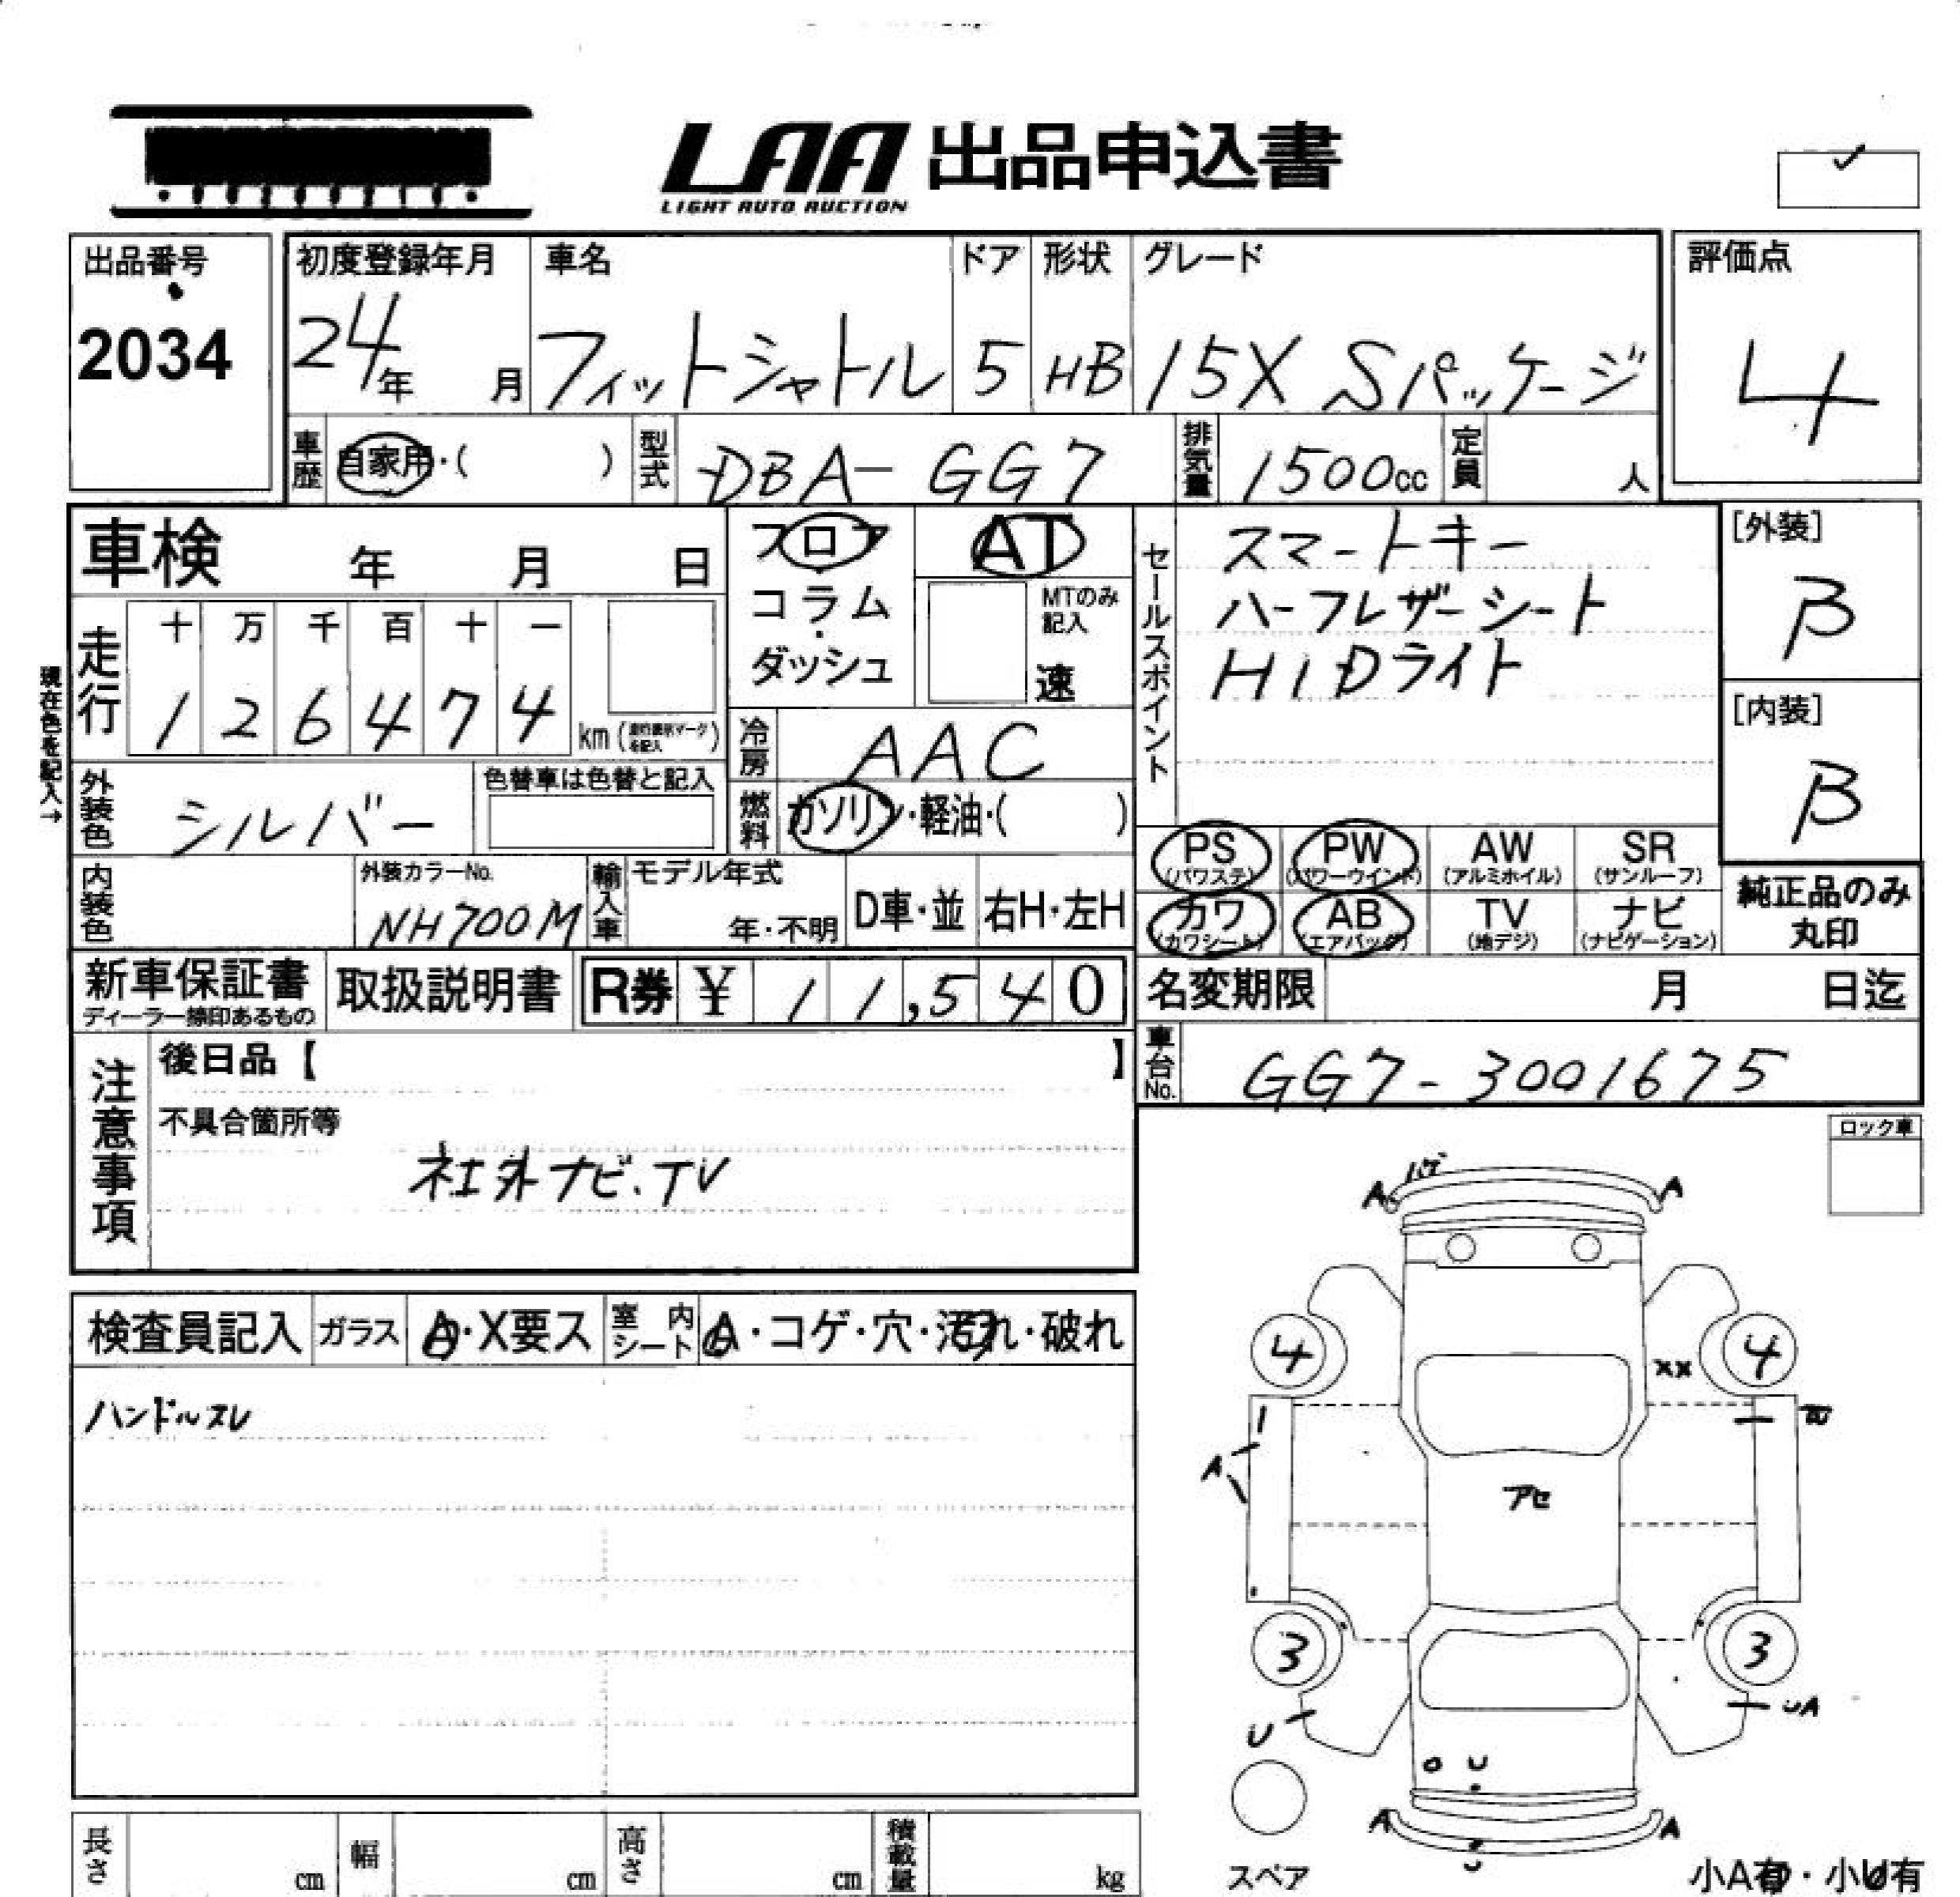 LAA 出品申込書
LIGHT AUTO AUCTION
出品番号
2034
初度登録年月 車名 ドア 形状 グレード 評価点
24年 月 フィットシャトル 5 HB 15X Sパッケージ 4
車歴 自家用・( ) 型式 DBA-GG7 排気量 1500cc 定員 人
車検 年 月 日
フロア
・
コラム
・
ダッシュ
AT
MTのみ
記入
速
セールスポイント
スマートキー
ハーフレザーシート
HIDライト
[外装]
β
[内装]
β
現在色を記入→
走行
十 万 千 百 十 一
1 2 6 4 7 4 km
冷房 AAC
外装色 シルバー 色替車は色替と記入
燃料 ガソリン・軽油・( )
PS PW AW SR
(パワステ) (パワーウインド) (アルミホイル) (サンルーフ)
カワ AB TV ナビ
(カワシート) (エアバック) (地デジ) (ナビゲーション)
純正品のみ
丸印
内装色 外装カラーNo.
NH700M
輸入車 モデル年式
年・不明 D車・並 右H・左H
新車保証書 取扱説明書 R券 ¥ 11,540
ディーラー捺印あるもの
名変期限 月 日迄
車台No. GG7-3001675
注意事項
後日品【 】
不具合箇所等
社外ナビ.TV
ロック車
検査員記入 ガラス A・X要ス 室内シート A・コゲ・穴・汚れ・破れ
ハンドルスレ
ハゲ
A A
4 4
XX
A
アセ
3 3
U UA
U
A A
U
スペア
小A有・小U有
長さ cm 幅 cm 高さ cm 積載量 kg